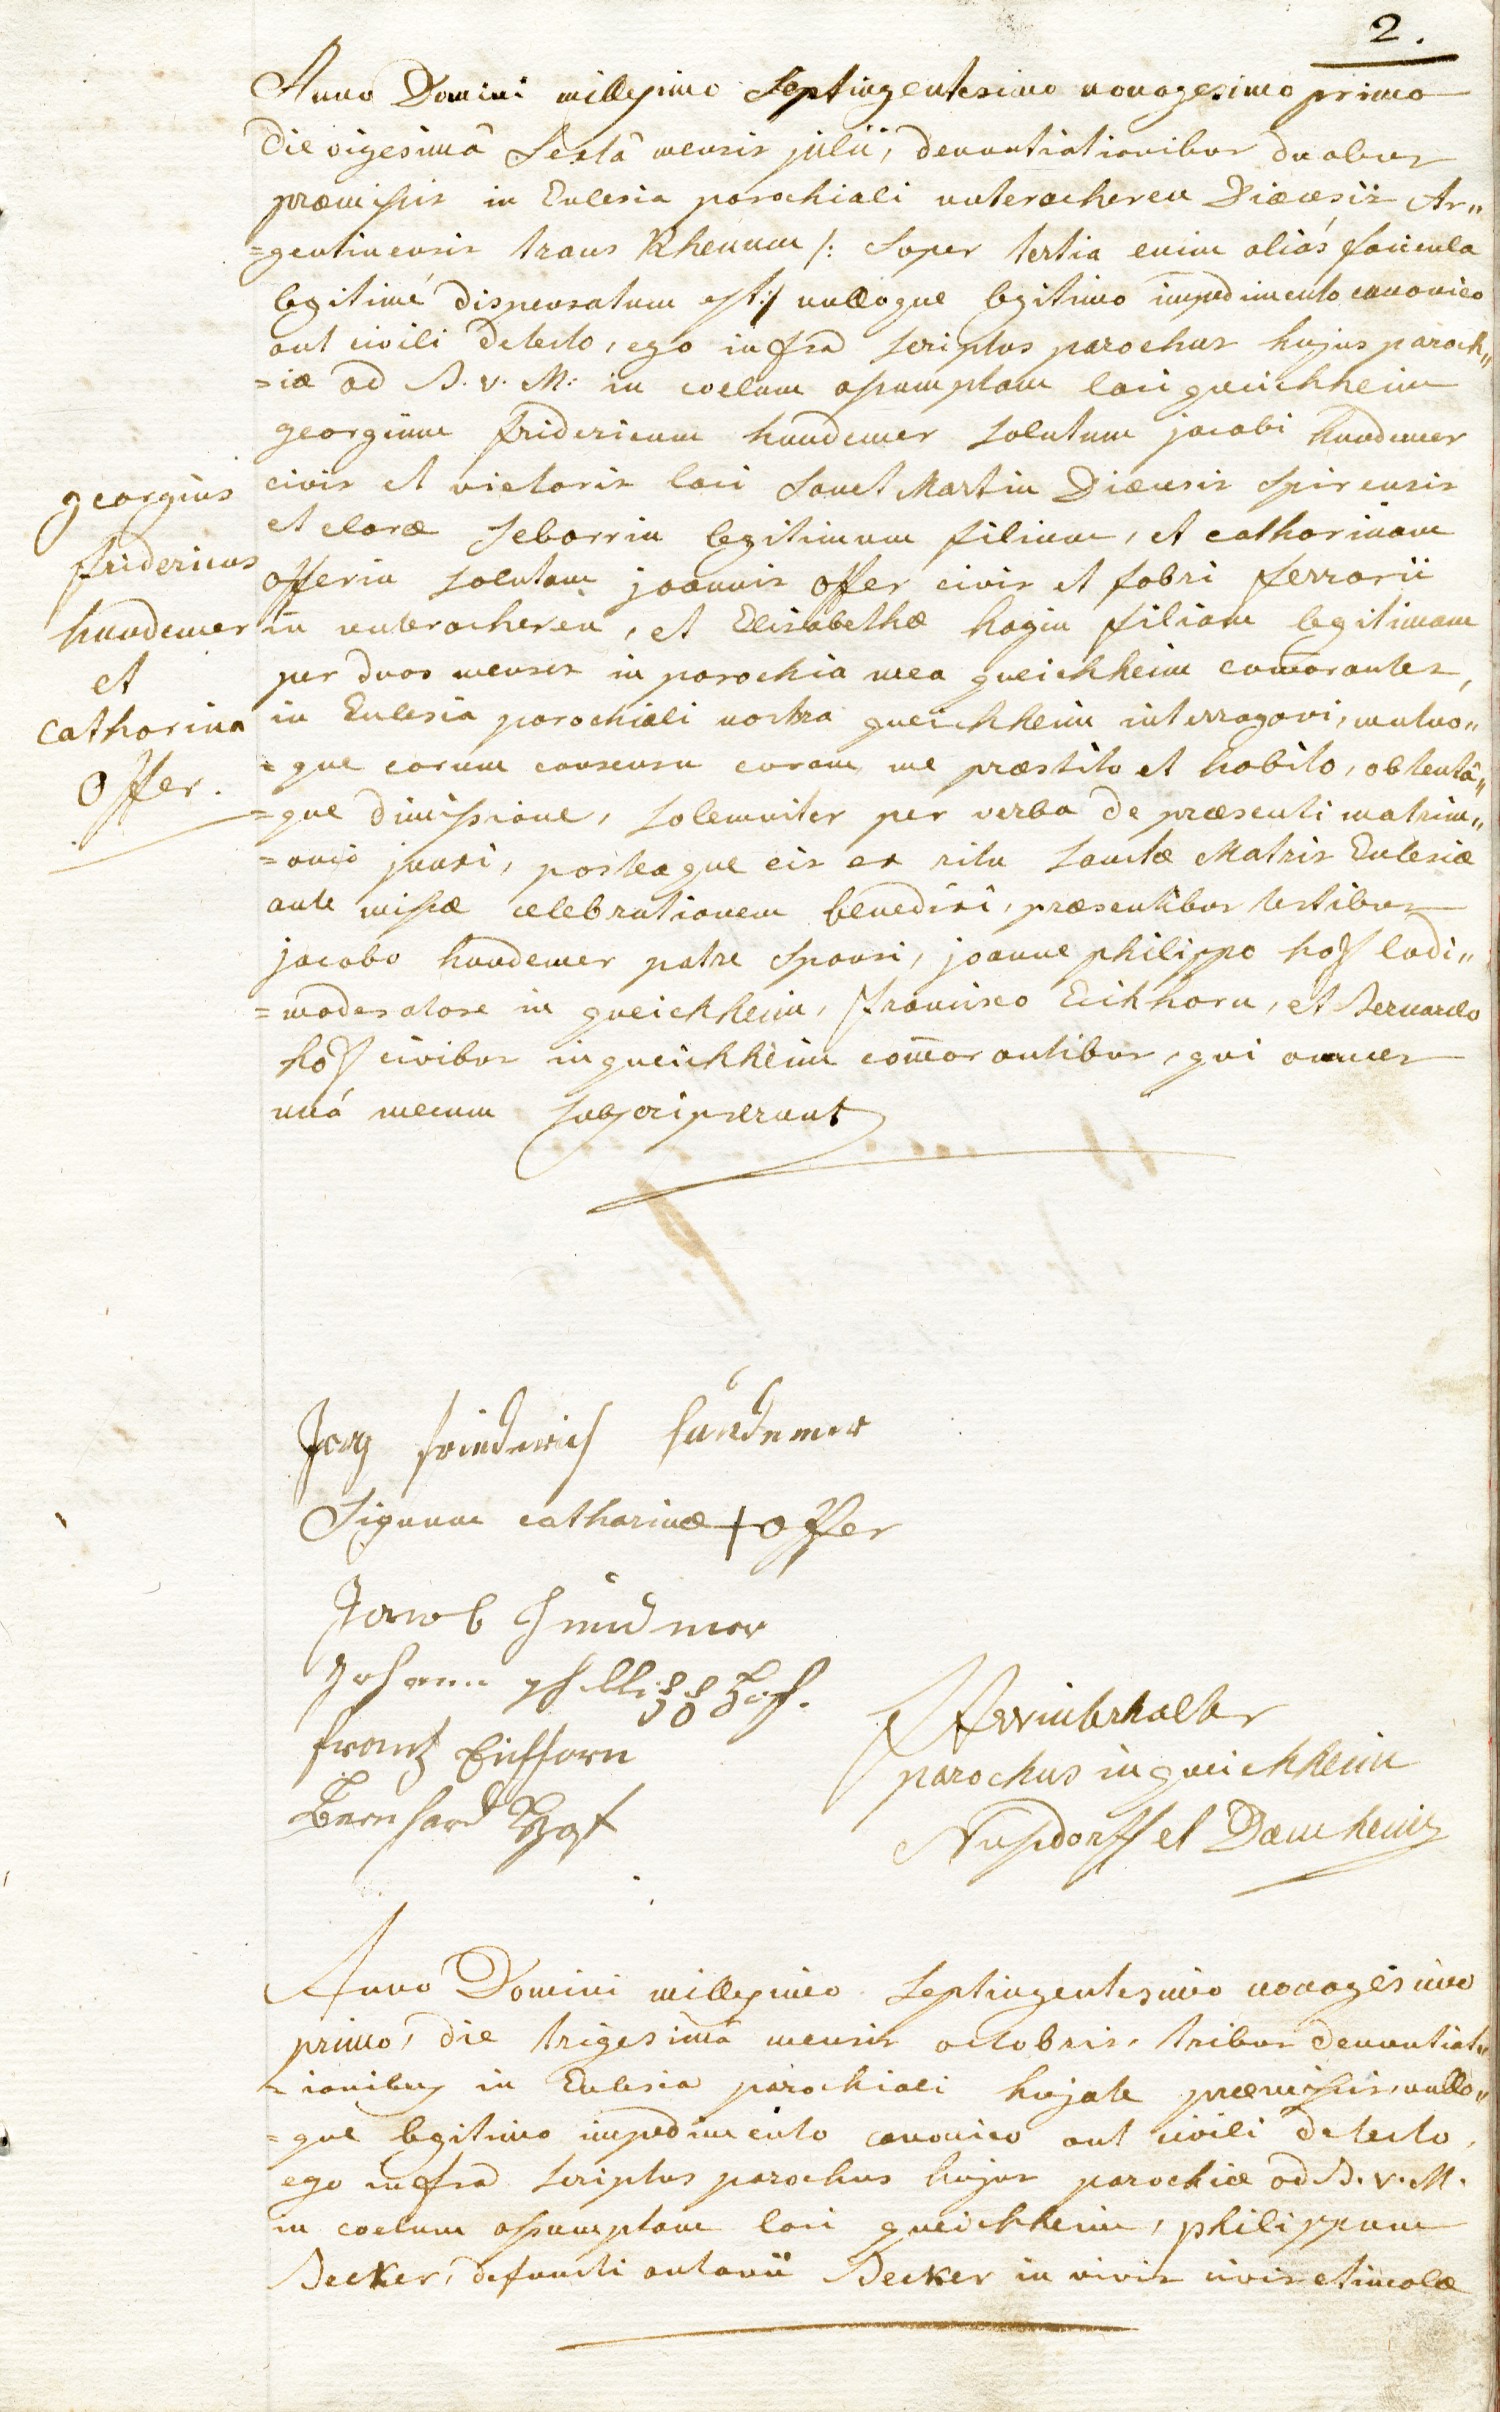 2.
Anno Domini millesimo Septingentesimo nonagesimo primo
die vigesimâ Sextâ mensis julii, denuntiationibus duabus
præmissis in Eclesia parochiali unteracheren Diæcesis Ar„
=gentinensis trans Rhenum /: Super tertia enim aliás facienda
legitimé dispensatum est:/ nulloque legitimo impedimento canonico
aut civili detecto, ego infra scriptus parochus hujus paroch„
=iæ ad B. v. M: in coelum assumptam loci queichheim
georgium fridericum hundemer solutum jacobi hundemer
civis et vietoris loci Sanct Martin Diæcesis Spirensis
et claræ Seborrin legitimum filium, et catharinam
offerin solutam joannis offer civis et fabri ferrarii
in unteracheren, et Elisabethæ hagin filiam legitimam
per duos menses in parochia mea queichheim com̄orantes,
in Eclesia parochiali nostra queichheim interrogavi, mutuo„
=que eorum consensu coram me præstito et habito, obtentâ„
=que dimissione, solemniter per verba de præsenti matrim„
=onio junxi, posteaque eis ex ritu Sanctæ Matris Eclesiæ
ante missæ celebrationem benedixi, præsentibus testibus
jacobo hundemer patre sponsi, joanne philippo hoff ludi„
=moderatore in queichheim, francisco Eichhorn, et Bernardo
hoff civibus in queichheim com̄orantibus, qui omnes
unâ mecum subscripserunt
georgius
fridericus
hundemer
et
catharina
offer.
Jorg friederich hundemer
Signum catharinæ + offer
Jacob Hundmer
Johann phillipp Hoff.
frantz Eichhorn
Bernhard Hof
Winterhalter
parochus in queichheim
Nusdorff et Damheim
Anno Domini millesimo Septingentesimo nonagesimo
primo, die trigesimâ mensis octobris, tribus denuntiat„
=ionibus in Eclesia parochiali hujate præmissis, nullo„
=que legitimo impedimento canonico aut civili detecto,
ego infra scriptus parochus hujus parochiæ ad B. v. M.
in coelum assumptam loci queichheim, philippum
Becker, defuncti antonii Becker in vivis civis et incolæ